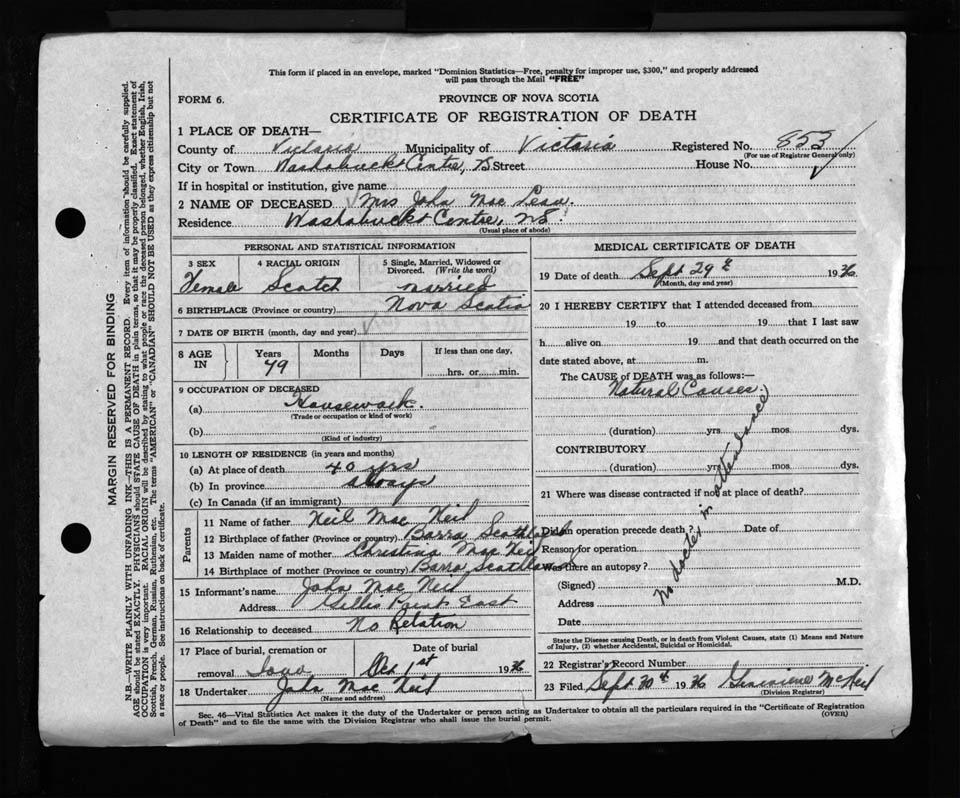 This form if placed in an envelope, marked "Dominion Statistics—Free, penalty for improper use, $300," and properly addressed
will pass through the Mail "FREE"
FORM 6.
PROVINCE OF NOVA SCOTIA
CERTIFICATE OF REGISTRATION OF DEATH
1 PLACE OF DEATH—
County of Victoria Municipality of Victoria Registered No. 853
(For use of Registrar General only)
City or Town Washabuckt Centre, NS Street House No.
If in hospital or institution, give name
2 NAME OF DECEASED Mrs John Mac Lean
Residence Washabuckt Centre, NS.
(Usual place of abode)
PERSONAL AND STATISTICAL INFORMATION
3 SEX 4 RACIAL ORIGIN 5 Single, Married, Widowed or
Divorced. (Write the word)
Female Scotch married
6 BIRTHPLACE (Province or country) Nova Scotia
7 DATE OF BIRTH (month, day and year)
8 AGE IN Years Months Days If less than one day,
79 hrs. or min.
9 OCCUPATION OF DECEASED
(a) Housework.
(Trade or occupation or kind of work)
(b)
(Kind of industry)
10 LENGTH OF RESIDENCE (in years and months)
(a) At place of death 40 yrs
(b) In province always
(c) In Canada (if an immigrant)
Parents
11 Name of father Neil Mac Neil
12 Birthplace of father (Province or country) Barra Scothland
13 Maiden name of mother Christina Mac Neil
14 Birthplace of mother (Province or country) Barra Scothland
15 Informant's name John Mac Neil
Address Gillis Point East
16 Relationship to deceased No Relation
17 Place of burial, cremation or Date of burial
removal Iona Oct 1st 1936
18 Undertaker John Mac Neil
(Name and address)
MEDICAL CERTIFICATE OF DEATH
19 Date of death Sept 29th 1936
(Month, day and year)
20 I HEREBY CERTIFY that I attended deceased from
19 to 19 that I last saw
h alive on 19 and that death occurred on the
date stated above, at m.
The CAUSE of DEATH was as follows:—
Natural Causes.
(duration) yrs. mos. dys.
CONTRIBUTORY
(duration) yrs. mos. dys.
No doctor in attendance
21 Where was disease contracted if not at place of death?
Did an operation precede death? Date of
Reason for operation
Was there an autopsy?
(Signed) M.D.
Address
Date
State the Disease causing Death, or in death from Violent Causes, state (1) Means and Nature
of Injury, (2) whether Accidental, Suicidal or Homicidal.
22 Registrar's Record Number
23 Filed Sept 30th 1936 McNeil
(Division Registrar)
Sec. 46—Vital Statistics Act makes it the duty of the Undertaker or person acting as Undertaker to obtain all the particulars required in the "Certificate of Registration
of Death" and to file the same with the Division Registrar who shall issue the burial permit.
(OVER)
MARGIN RESERVED FOR BINDING
N.B.—WRITE PLAINLY WITH UNFADING INK—THIS IS A PERMANENT RECORD. Every item of information should be carefully supplied.
AGE should be stated EXACTLY. PHYSICIANS should STATE CAUSE OF DEATH in plain terms, so that it may be properly classified. Exact statement of
OCCUPATION is very important. RACIAL ORIGIN will be described by stating to what people or race the deceased person belonged, whether English, Irish,
Scottish, French, German, Russian, Ruthenian, etc. The terms "AMERICAN" or "CANADIAN" SHOULD NOT BE USED as they express citizenship but not
a race or people. See instructions on back of certificate.